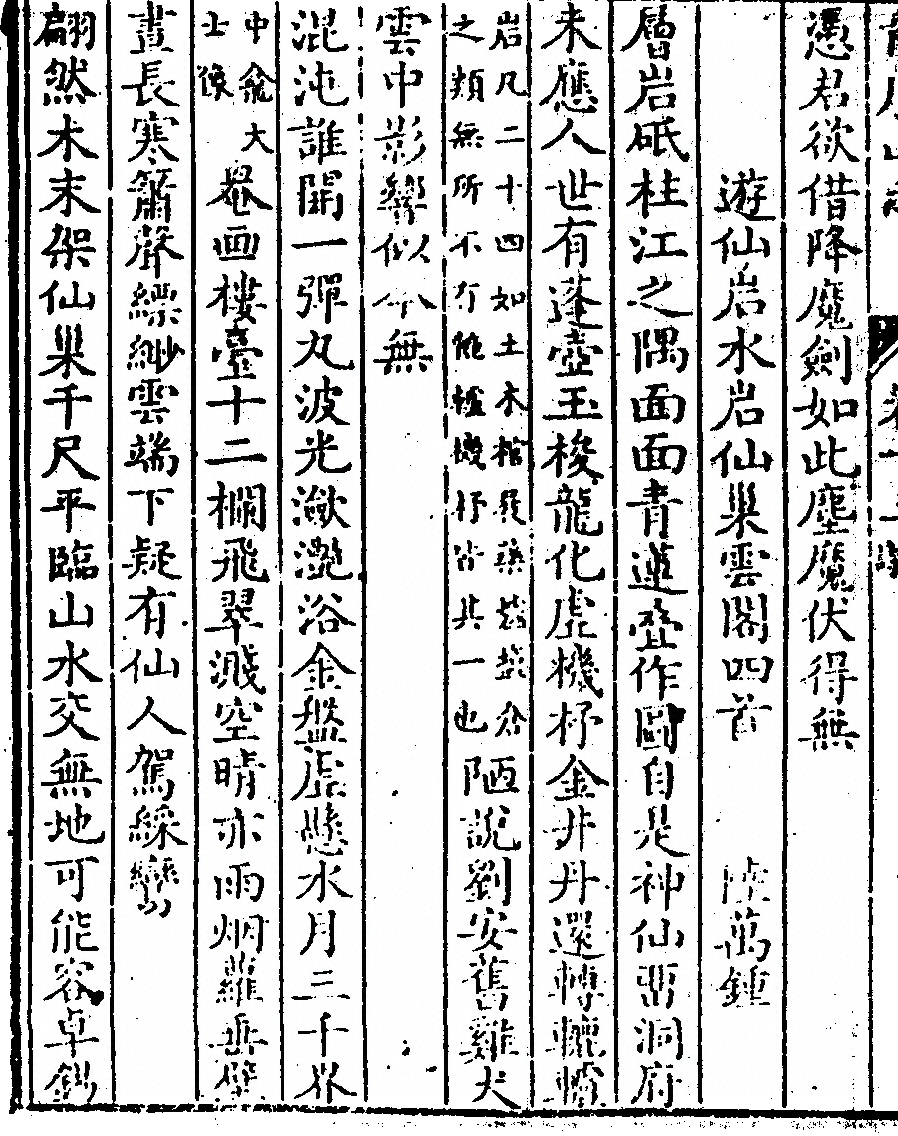 憑君欲借降魔劍如此塵魔伏得無
遊仙岩水岩仙巢雲閣四首 陸萬鍾
層岩砥柱江之隅面面青蓮疊作圖自是神仙留洞府
未應人世有蓬壺玉梭龍化虛機杼金井丹還轉轆轤
岩凡二十四如土木棺
之類無所不有能轤機杼皆其一也
陋說劉安舊雞犬
雲中影響似今無
混沌誰開一彈丸波光瀲灩浴金盤虛懸水月三千界
中飛大
士像
罨画樓臺十二欄飛翠濺空晴亦雨烟蘿垂壁
晝長寒簫聲縹緲雲端下疑有仙人駕綵鸞
翩然木末架仙巢千尺平臨山水交無地可能容卓錫